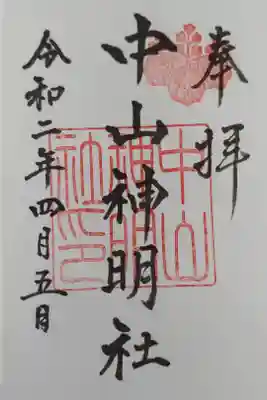 奉拝
中山神明社
令和二年四月五日
中山
神明
社印